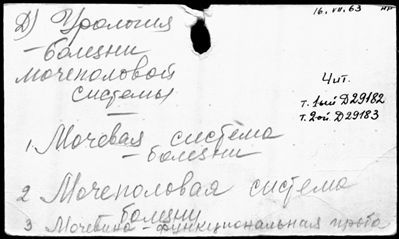 Д) Урология
16.VII.63
– болезни
мочеполовой
системы
Чит.
т. 1ый Д29182
т. 2ой Д29183
1 Мочевая система
– болезни
2 Мочеполовая система
болезни
3 Мочевина – функциональная проба